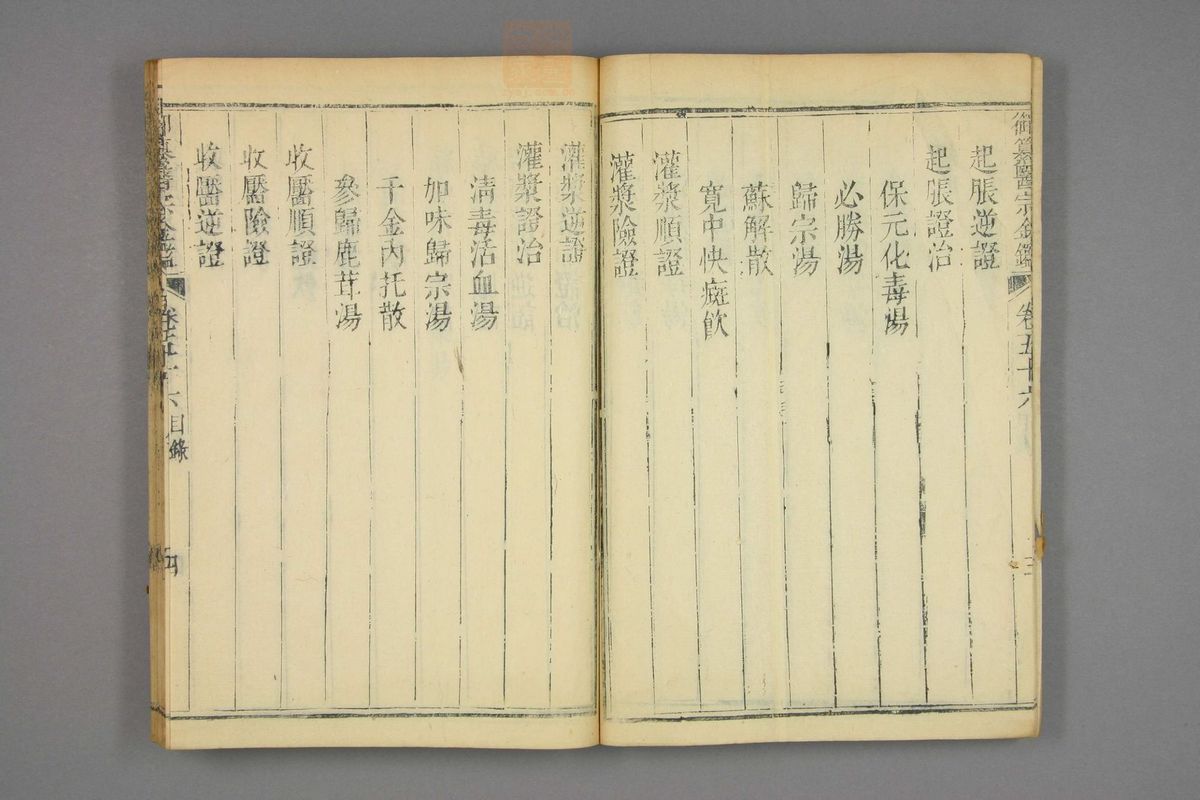 御纂醫宗金鑑
卷五十六
起脹逆證
起脹證治
保元化毒湯
必勝湯
歸宗湯
蘇解散
寬中快癍飲
灌漿順證
灌漿險證
灌漿逆證
灌漿證治
清毒活血湯
加味歸宗湯
千金內托散
參歸鹿茸湯
收靨順證
收靨險證
收靨逆證
御纂醫宗金鑑
卷五十六目錄
四